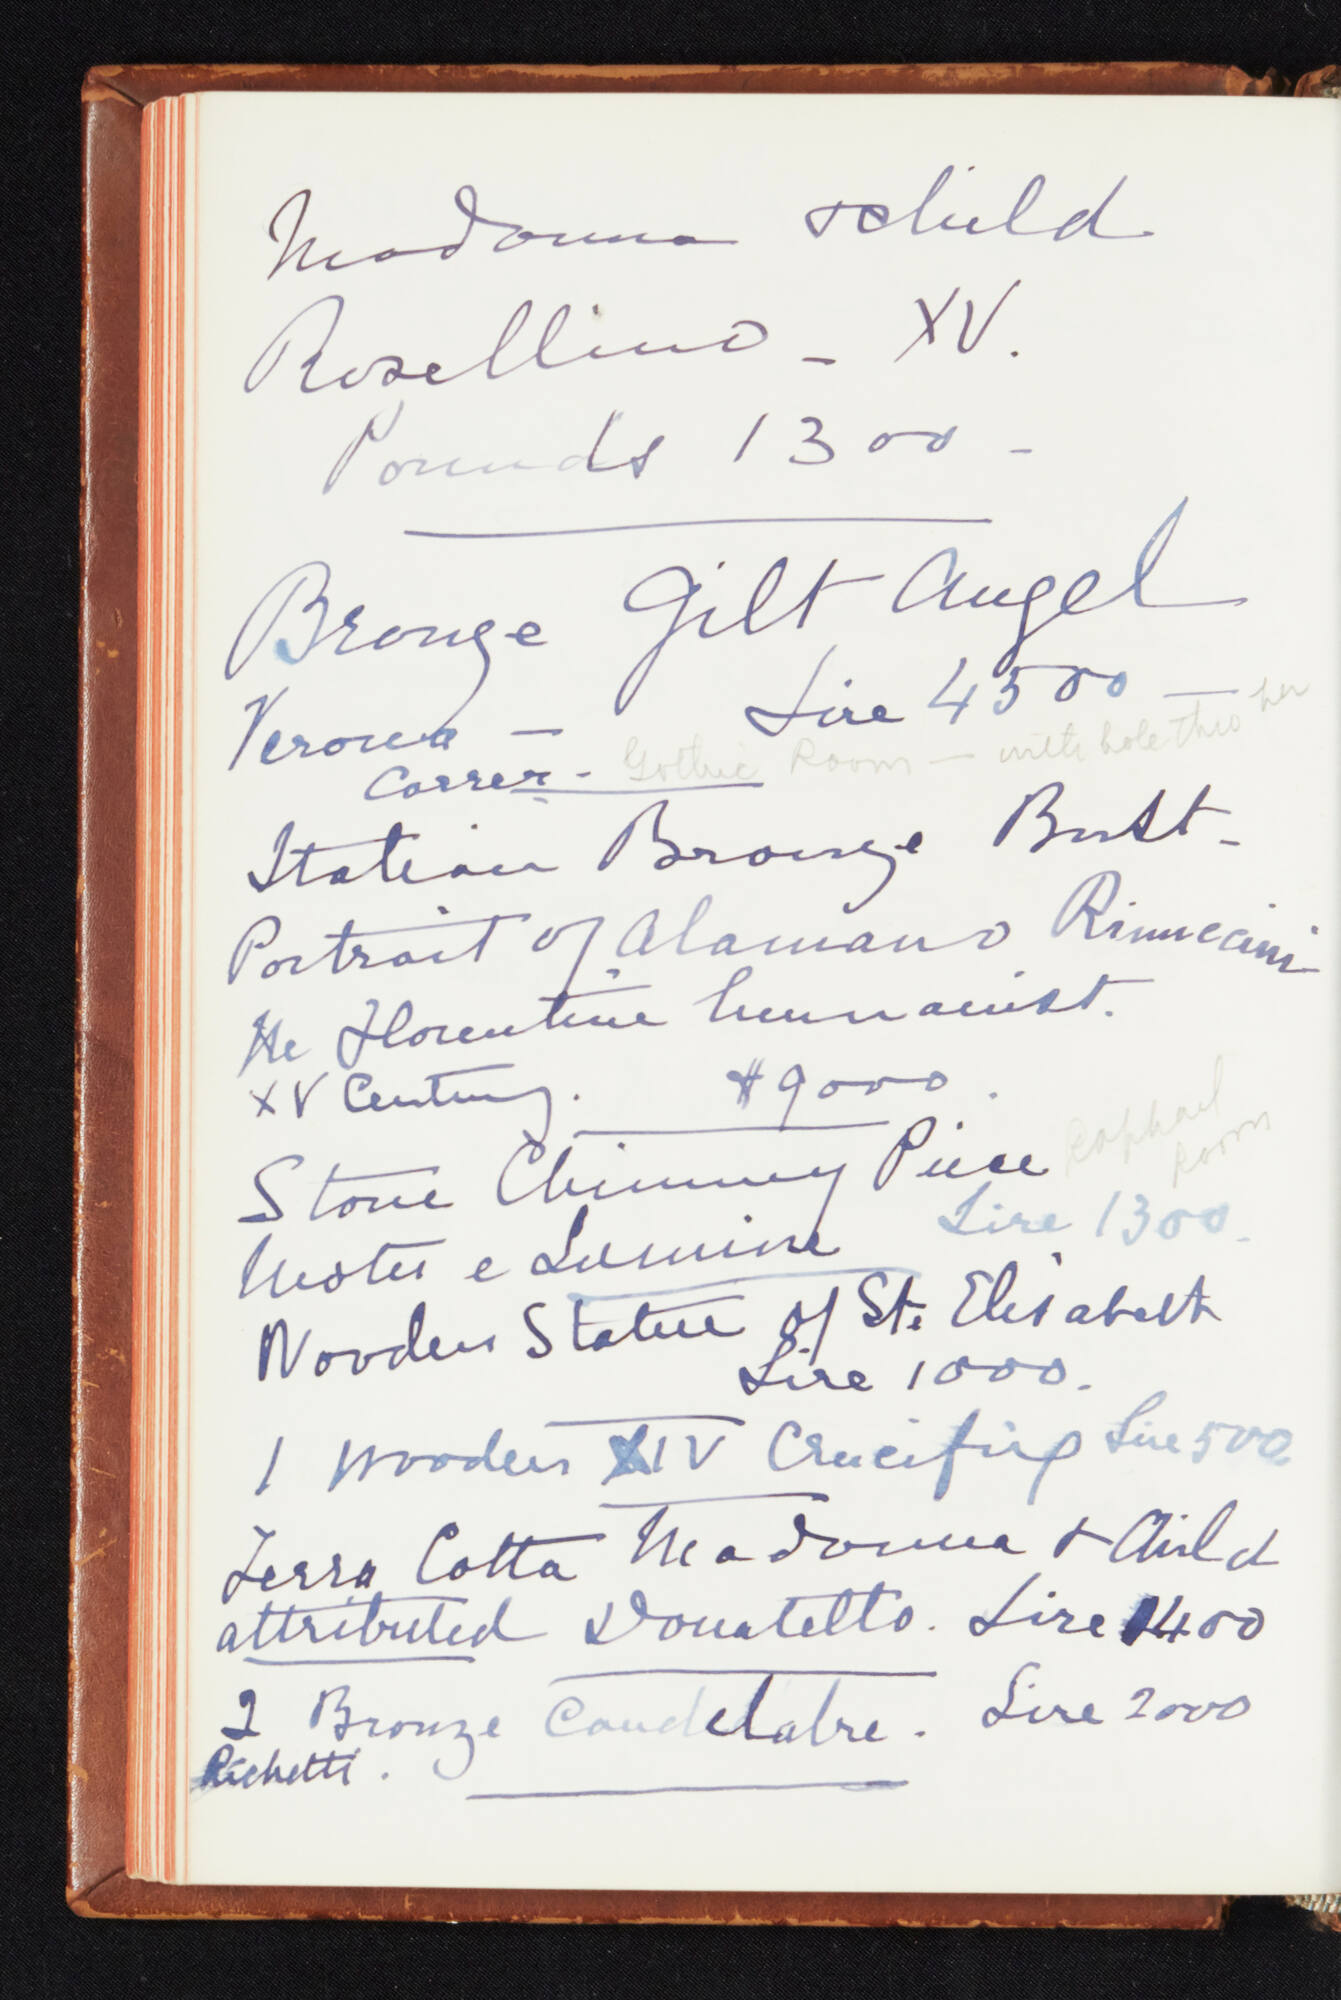 Madonna & child
Rosellino - XV.
Pounds 1300 -
Bronze Gilt Angel
Verona - Lire 4500 -
Correr - Gothic Room - with hole thro her
Italian Bronze Bust -
Portrait of Alamano Rinuccini
the Florentine humanist.
XV Century. $9000.
Stone Chimney Piece Raphael Room
Motes e Lumine Lire 1300.
Wooden Statue of St. Elisabeth
Lire 1000.
1 wooden XIV Crucifix Lire 500
Terra Cotta Madonna & Child
attributed Donatello. Lire 1400
2 Bronze Candelabre. Lire 2000
Richetti.